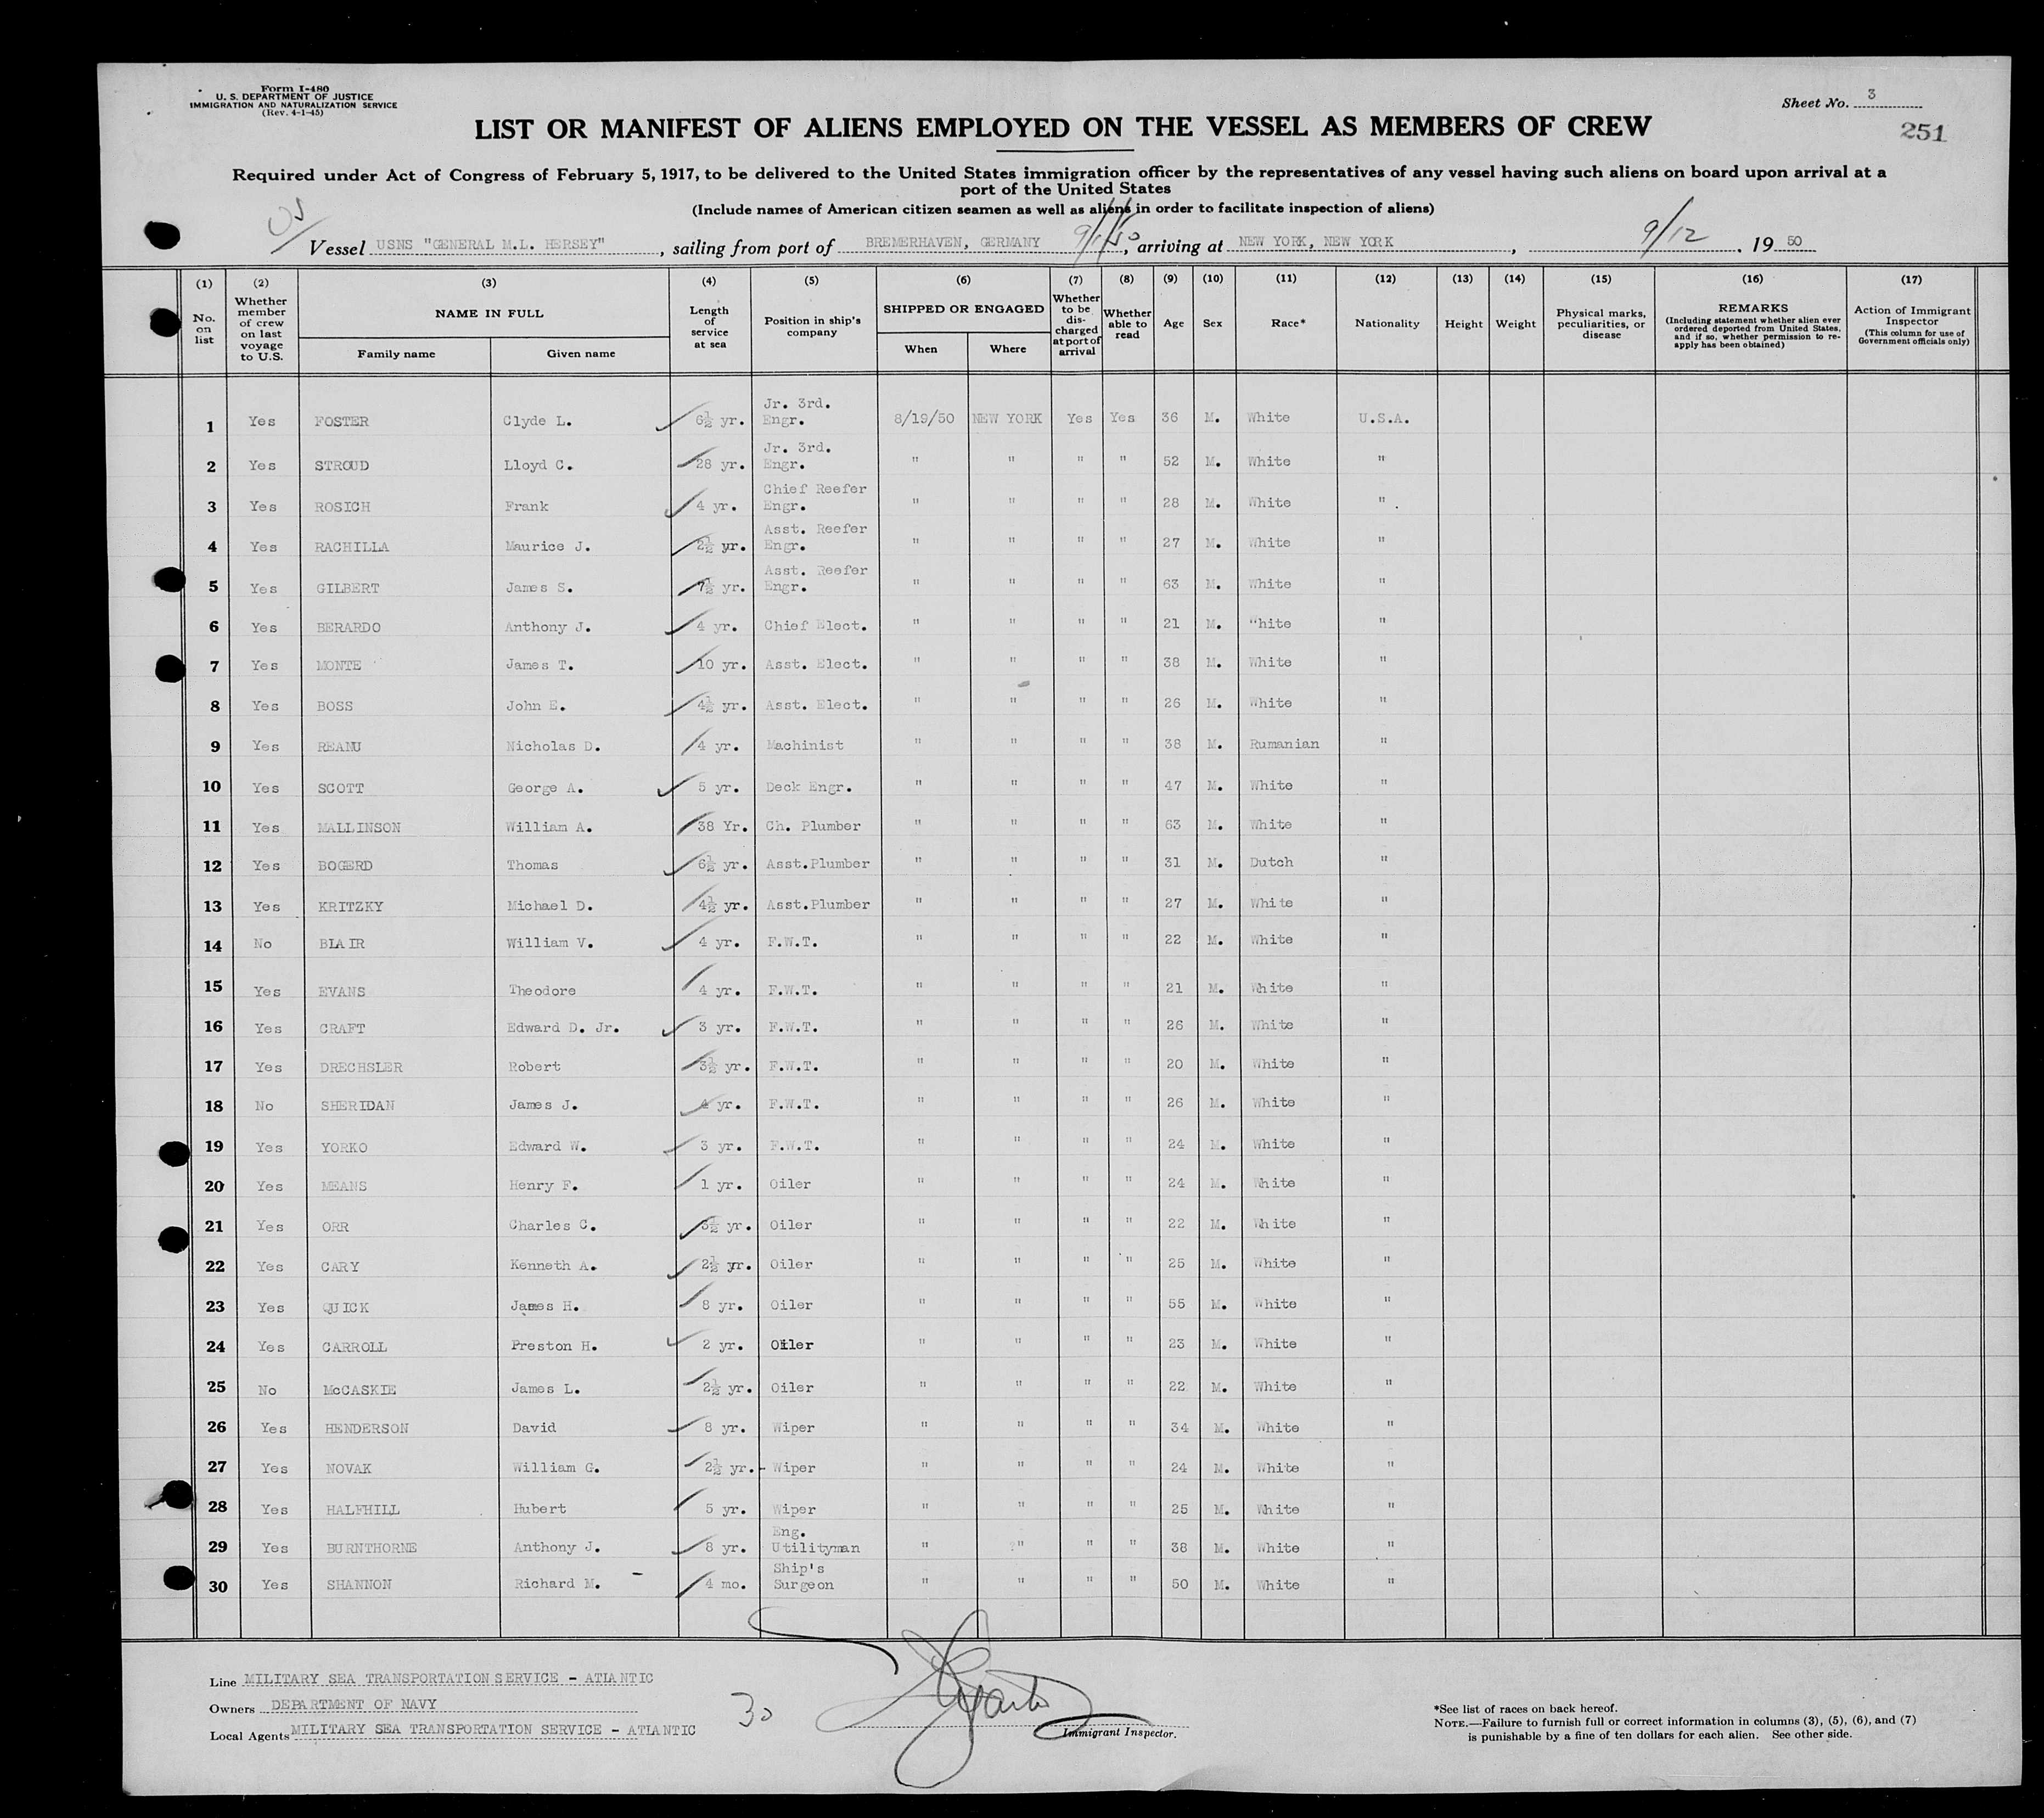 Form I-480
U. S. DEPARTMENT OF JUSTICE
IMMIGRATION AND NATURALIZATION SERVICE
(Rev. 4-1-45)
Sheet No. 3
251
LIST OR MANIFEST OF ALIENS EMPLOYED ON THE VESSEL AS MEMBERS OF CREW
Required under Act of Congress of February 5, 1917, to be delivered to the United States immigration officer by the representatives of any vessel having such aliens on board upon arrival at a
port of the United States
(Include names of American citizen seamen as well as aliens in order to facilitate inspection of aliens)
Vessel USNS "GENERAL M.L. HERSEY", sailing from port of BREMERHAVEN, GERMANY 9/1/50, arriving at NEW YORK, NEW YORK, 9/12, 19 50
(1) No. on list
(2) Whether member of crew on last voyage to U.S.
(3) NAME IN FULL Family name Given name
(4) Length of service at sea
(5) Position in ship's company
(6) SHIPPED OR ENGAGED When Where
(7) Whether to be discharged at port of arrival
(8) Whether able to read
(9) Age
(10) Sex
(11) Race*
(12) Nationality
(13) Height
(14) Weight
(15) Physical marks, peculiarities, or disease
(16) REMARKS (Including statement whether alien ever ordered deported from United States, and if so, whether permission to reapply has been obtained)
(17) Action of Immigrant Inspector (This column for use of Government officials only)
1 Yes FOSTER Clyde L. 6½ yr. Jr. 3rd. Engr. 8/19/50 NEW YORK Yes Yes 36 M. White U.S.A.
2 Yes STROUD Lloyd C. 28 yr. Jr. 3rd. Engr. " " " " 52 M. White "
3 Yes ROSICH Frank 4 yr. Chief Reefer Engr. " " " " 28 M. White "
4 Yes RACHILLA Maurice J. 2½ yr. Asst. Reefer Engr. " " " " 27 M. White "
5 Yes GILBERT James S. 7½ yr. Asst. Reefer Engr. " " " " 63 M. White "
6 Yes BERARDO Anthony J. 4 yr. Chief Elect. " " " " 21 M. "hite "
7 Yes MONTE James T. 10 yr. Asst. Elect. " " " " 38 M. White "
8 Yes BOSS John E. 4½ yr. Asst. Elect. " " " " 26 M. White "
9 Yes REANU Nicholas D. 4 yr. Machinist " " " " 38 M. Rumanian "
10 Yes SCOTT George A. 5 yr. Deck Engr. " " " " 47 M. White "
11 Yes MALLINSON William A. 38 Yr. Ch. Plumber " " " " 63 M. White "
12 Yes BOGERD Thomas 6½ yr. Asst.Plumber " " " " 31 M. Dutch "
13 Yes KRITZKY Michael D. 4½ yr. Asst.Plumber " " " " 27 M. White "
14 No BLAIR William V. 4 yr. F.W.T. " " " " 22 M. White "
15 Yes EVANS Theodore 4 yr. F.W.T. " " " " 21 M. White "
16 Yes CRAFT Edward D. Jr. 3 yr. F.W.T. " " " " 26 M. White "
17 Yes DRECHSLER Robert 3½ yr. F.W.T. " " " " 20 M. White "
18 No SHERIDAN James J. 4 yr. F.W.T. " " " " 26 M. White "
19 Yes YORKO Edward W. 3 yr. F.W.T. " " " " 24 M. White "
20 Yes MEANS Henry F. 1 yr. Oiler " " " " 24 M. White "
21 Yes ORR Charles C. 3½ yr. Oiler " " " " 22 M. White "
22 Yes CARY Kenneth A. 2½ yr. Oiler " " " " 25 M. White "
23 Yes QUICK James H. 8 yr. Oiler " " " " 55 M. White "
24 Yes CARROLL Preston H. 2 yr. Oiler " " " " 23 M. White "
25 No McCASKIE James L. 2½ yr. Oiler " " " " 22 M. White "
26 Yes HENDERSON David 8 yr. Wiper " " " " 34 M. White "
27 Yes NOVAK William G. 2½ yr. Wiper " " " " 24 M. White "
28 Yes HALFHILL Hubert 5 yr. Wiper " " " " 25 M. White "
29 Yes BURNTHORNE Anthony J. 8 yr. Eng. Utilityman " " " " 38 M. White "
30 Yes SHANNON Richard M. 4 mo. Ship's Surgeon " " " " 50 M. White "
Line MILITARY SEA TRANSPORTATION SERVICE - ATLANTIC
Owners DEPARTMENT OF NAVY
Local Agents MILITARY SEA TRANSPORTATION SERVICE - ATLANTIC
30
Immigrant Inspector.
*See list of races on back hereof.
NOTE.—Failure to furnish full or correct information in columns (3), (5), (6), and (7)
is punishable by a fine of ten dollars for each alien. See other side.